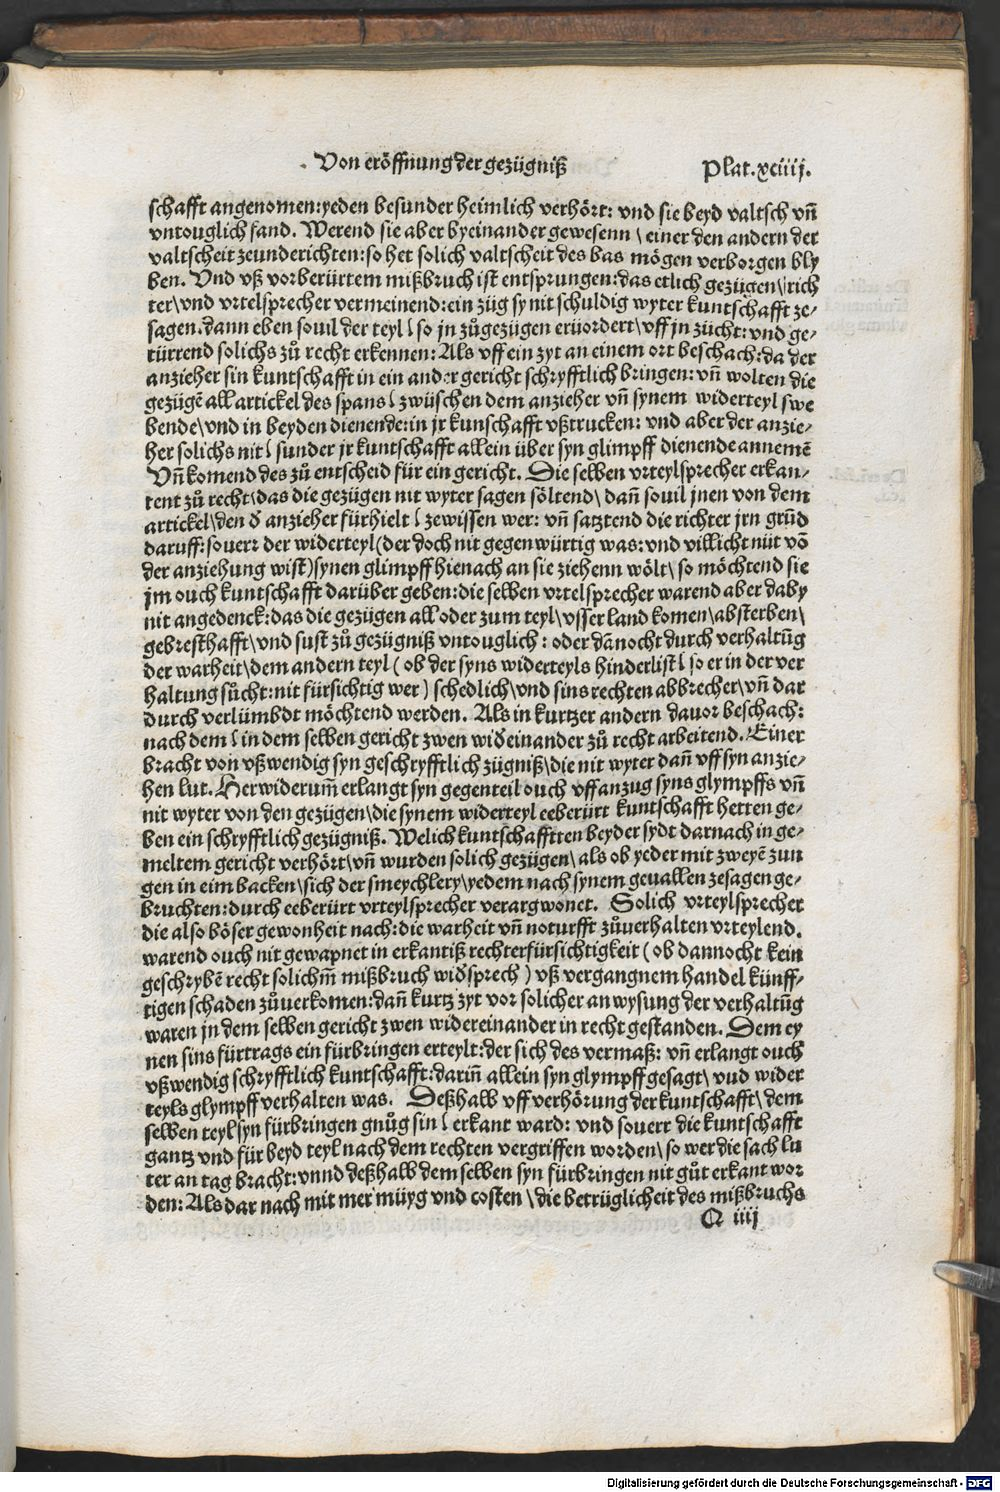 Von eröffnung der gezügniß Plat.xciiij.
schafft angenomen: yeden besunder heimlich verhört: vnd sie beyd valtsch vn̄
vntouglich fand. Werend sie aber byeinander gewesenn \ einer den andern der
valtscheit zeunderichten: so het solich valtscheit des bas mögen verborgen bly
ben. Vnd vß vorberürtem mißbruch ist entsprungen: das etlich gezügen \ rich
ter \ vnd vrtelsprecher vermeinend: ein züg sy nit schuldig wyter kuntschafft ze-
sagen. dann eben souil der teyl \ so jn zů gezügen eruordert \ vff jn zücht: vnd ge-
türrend solichs zů recht erkennen: Als vff ein zyt an einem ort beschach: da der
anzieher sin kuntschafft in ein ander gericht schryfftlich bringen: vn̄ wolten die
gezügē all artickel des spans \ zwüschen dem anzieher vn̄ synem widerteyl swe
bende \ vnd in beyden dienende: in jr kunschafft vßtrucken: vnd aber der anzie-
her solichs nit \ sunder jr kuntschafft allein über syn glimpff dienende annemē
Vn̄ komend des zů entscheid für ein gericht. Die selben vrteylsprecher erkan-
tent zů recht \ das die gezügen nit wyter sagen söltend \ dan̄ souil jnen von dem
artickel \ den d̄ anzieher fürhielt \ zewissen wer: vn̄ satztend die richter jrn grūd
daruff: souerr der widerteyl (der doch nit gegenwürtig was: vnd villicht nüt vō
der anziehung wist) synen glimpff hienach an sie ziehenn wölt \ so möchtend sie
jm ouch kuntschafft darüber geben: die selben vrtelsprecher warend aber daby
nit angedenck: das die gezügen all oder zum teyl \ vsser land komen \ absterben \
gebresthafft \ vnd sust zů gezügniß vntouglich: oder dānocht durch verhaltūg
der warheit \ dem andern teyl (ob der syns widerteyls hinderlist \ so er in der ver
haltung sůcht: nit fürsichtig wer) schedlich \ vnd sins rechten abbrecher \ vn̄ dar
durch verlümbdt möchtend werden. Als in kurtzer andern dauor beschach:
nach dem \ in dem selben gericht zwen wid̄einander zů recht arbeitend. Einer
bracht von vßwendig syn geschryfftlich zügniß \ die nit wyter dan̄ vff syn anzie-
hen lut. Herwiderum̄ erlangt syn gegenteil ouch vff anzug syns glympffs vn̄
nit wyter von den gezügen \ die synem widerteyl eeberürt kuntschafft hetten ge-
ben ein schryfftlich gezügniß. Welich kuntschafftten beyder sydt darnach in ge-
meltem gericht verhört \ vn̄ wurden solich gezügen \ als ob yeder mit zweyē zun
gen in eim backen \ sich der smeychlery \ yedem nach synem geuallen zesagen ge-
bruchten: durch eeberürt vrteylsprecher verargwonet. Solich vrteylsprecher
die also böser gewonheit nach: die warheit vn̄ noturfft zůuerhalten vrteylend.
warend ouch nit gewapnet in erkantiß rechter fürsichtigkeit (ob dannocht kein
geschrybē recht solichm̄ mißbruch wid̄sprech) vß vergangnem handel künff-
tigen schaden zůuerkomen: dan̄ kurtz zyt vor solicher anwysung der verhaltūg
waren jn dem selben gericht zwen widereinander in recht gestanden. Dem ey
nen sins fürtrags ein fürbringen erteylt: der sich des vermaß: vn̄ erlangt ouch
vßwendig schryfftlich kuntschafft: darin̄ allein syn glympff gesagt \ vud wider
teyls glympff verhalten was. Deßhalb vff verhörung der kuntschafft \ dem
selben teyl syn fürbringen gnůg sin \ erkant ward: vnd souerr die kuntschafft
gantz vnd für beyd teyl nach dem rechten vergriffen worden \ so wer die sach lu
ter an tag bracht: vnnd deßhalb dem selben syn fürbringen nit gůt erkant wor
den: Als dar nach mit mer müyg vnd costen \ die betrüglicheit des mißbruchs
Q iiij
Digitalisierung gefördert durch die Deutsche Forschungsgemeinschaft - DFG